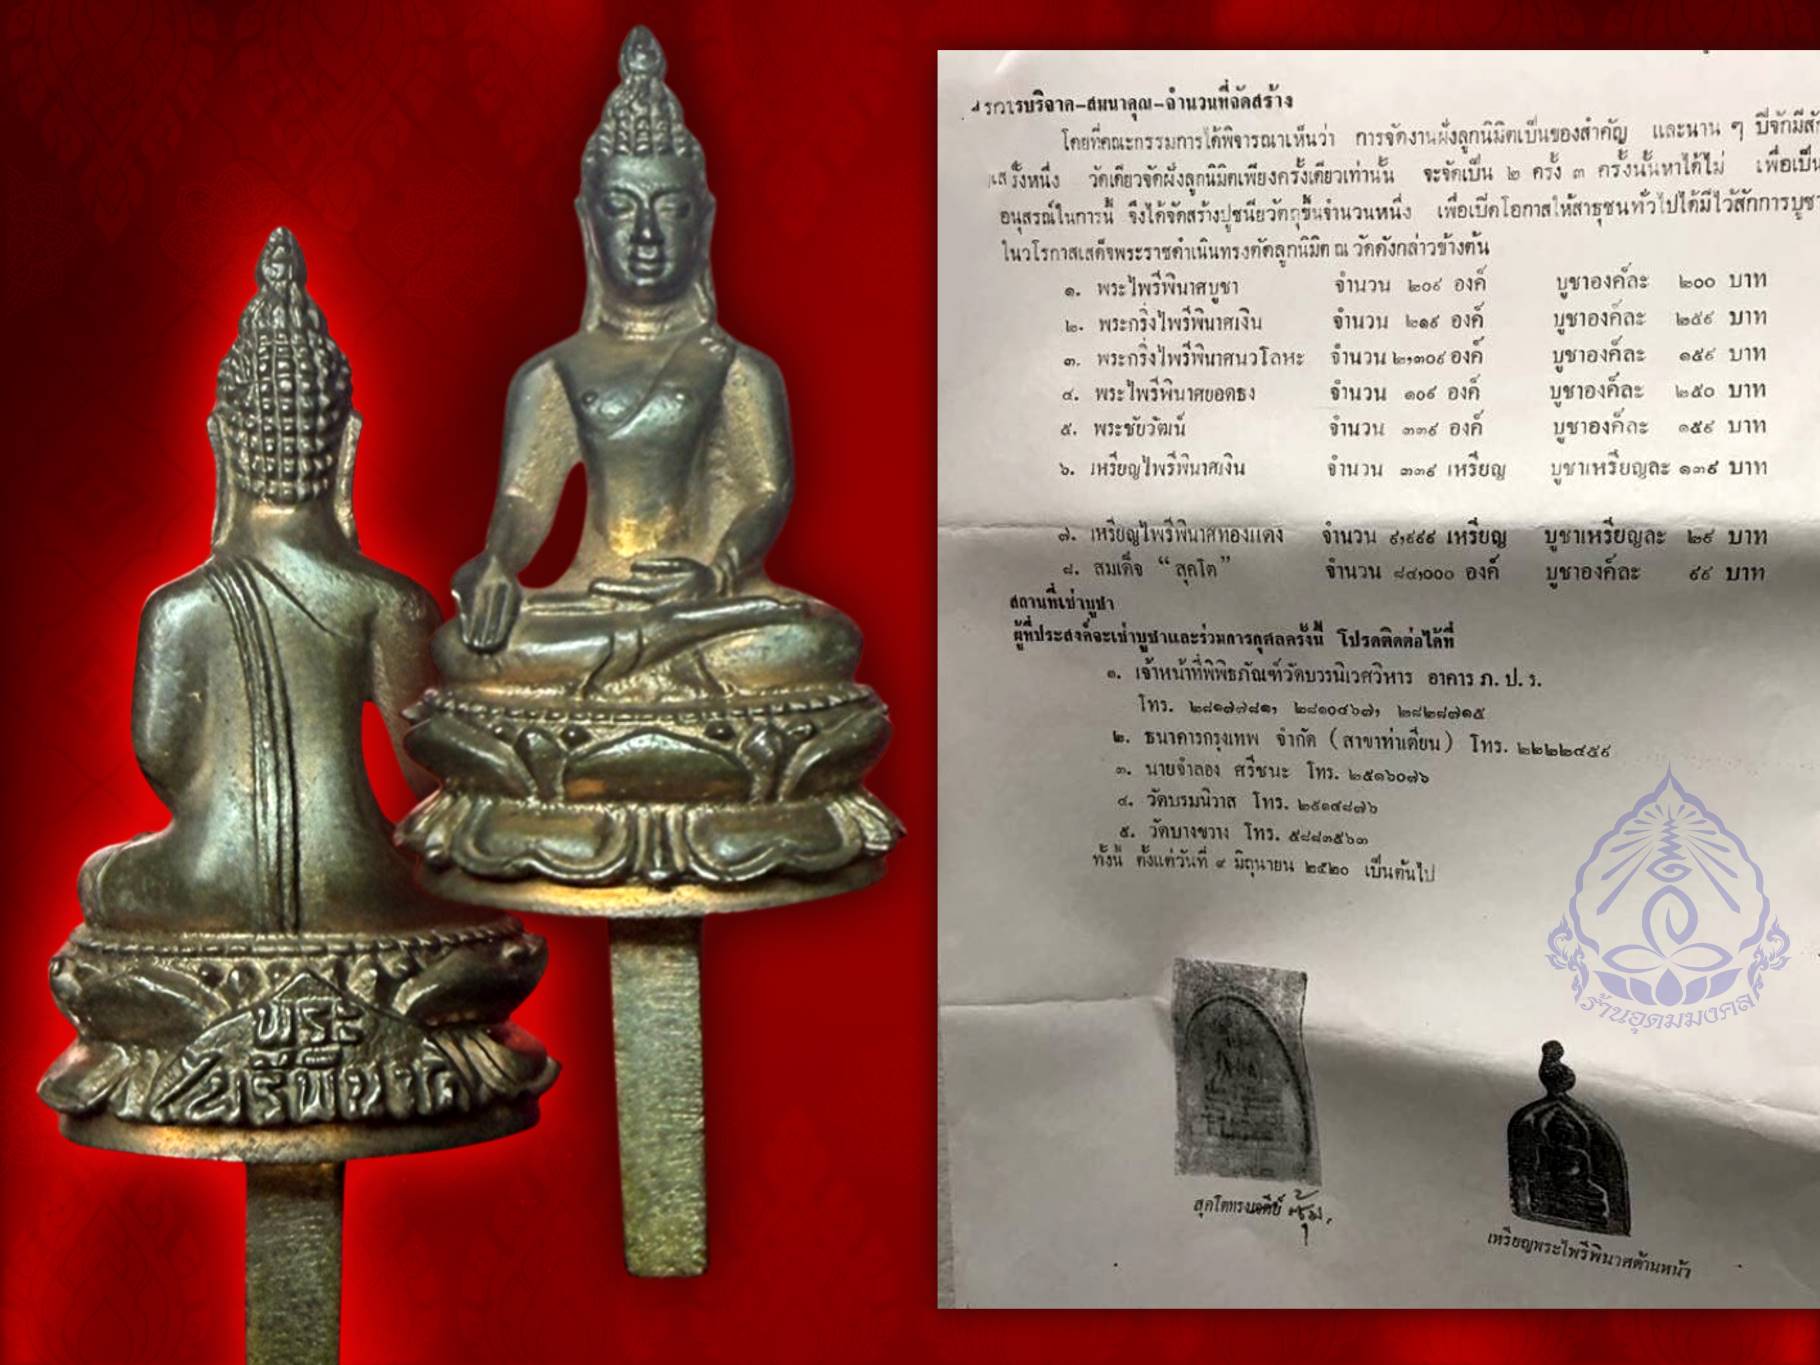 พระ
ไพรีพินาศ
รบริจาค-สมนาคุณ-จำนวนที่จัดสร้าง
โดยที่คณะกรรมการได้พิจารณาเห็นว่า การจัดงานฝังลูกนิมิตเป็นของสำคัญ และนาน ๆ ปีจักมีสัก
ครั้งหนึ่ง วัดเดียวจัดฝังลูกนิมิตเพียงครั้งเดียวเท่านั้น จะจัดเป็น ๒ ครั้ง ๓ ครั้งนั้นหาได้ไม่ เพื่อเป็น
อนุสรณ์ในการนี้ จึงได้จัดสร้างปูชนียวัตถุขึ้นจำนวนหนึ่ง เพื่อเปิดโอกาสให้สาธุชนทั่วไปได้มีไว้สักการบูชา
ในวโรกาสเสด็จพระราชดำเนินทรงตัดลูกนิมิต ณ วัดดังกล่าวข้างต้น
๑. พระไพรีพินาศบูชา จำนวน ๒๐๙ องค์ บูชาองค์ละ ๒๐๐ บาท
๒. พระกริ่งไพรีพินาศเงิน จำนวน ๒๑๙ องค์ บูชาองค์ละ ๒๕๙ บาท
๓. พระกริ่งไพรีพินาศนวโลหะ จำนวน ๒,๓๐๙ องค์ บูชาองค์ละ ๑๕๙ บาท
๔. พระไพรีพินาศยอดธง จำนวน ๑๐๙ องค์ บูชาองค์ละ ๒๕๐ บาท
๕. พระชัยวัฒน์ จำนวน ๓๓๙ องค์ บูชาองค์ละ ๑๕๙ บาท
๖. เหรียญไพรีพินาศเงิน จำนวน ๓๓๙ เหรียญ บูชาเหรียญละ ๑๓๙ บาท
๗. เหรียญไพรีพินาศทองแดง จำนวน ๙,๙๙๙ เหรียญ บูชาเหรียญละ ๒๙ บาท
๘. สมเด็จ “สุคโต” จำนวน ๘๔,๐๐๐ องค์ บูชาองค์ละ ๙๙ บาท
สถานที่เช่าบูชา
ผู้ที่ประสงค์จะเช่าบูชาและร่วมการกุศลครั้งนี้ โปรดติดต่อได้ที่
๑. เจ้าหน้าที่พิพิธภัณฑ์วัดบวรนิเวศวิหาร อาคาร ภ. ป. ร.
โทร. ๒๘๑๗๗๘๑, ๒๘๑๐๔๖๗, ๒๘๒๘๗๑๕
๒. ธนาคารกรุงเทพ จำกัด (สาขาท่าเตียน) โทร. ๒๒๒๒๔๕๙
๓. นายจำลอง ศรีชนะ โทร. ๒๕๑๖๐๗๖
๔. วัดบรมนิวาส โทร. ๒๕๑๔๘๗๖
๕. วัดบางขวาง โทร. ๕๘๘๓๕๖๓
ทั้งนี้ ตั้งแต่วันที่ ๙ มิถุนายน ๒๕๒๐ เป็นต้นไป
ร้านอุดมมงคล
สุคโตทรงเจดีย์ ซุ้ม.
เหรียญพระไพรีพินาศด้านหน้า